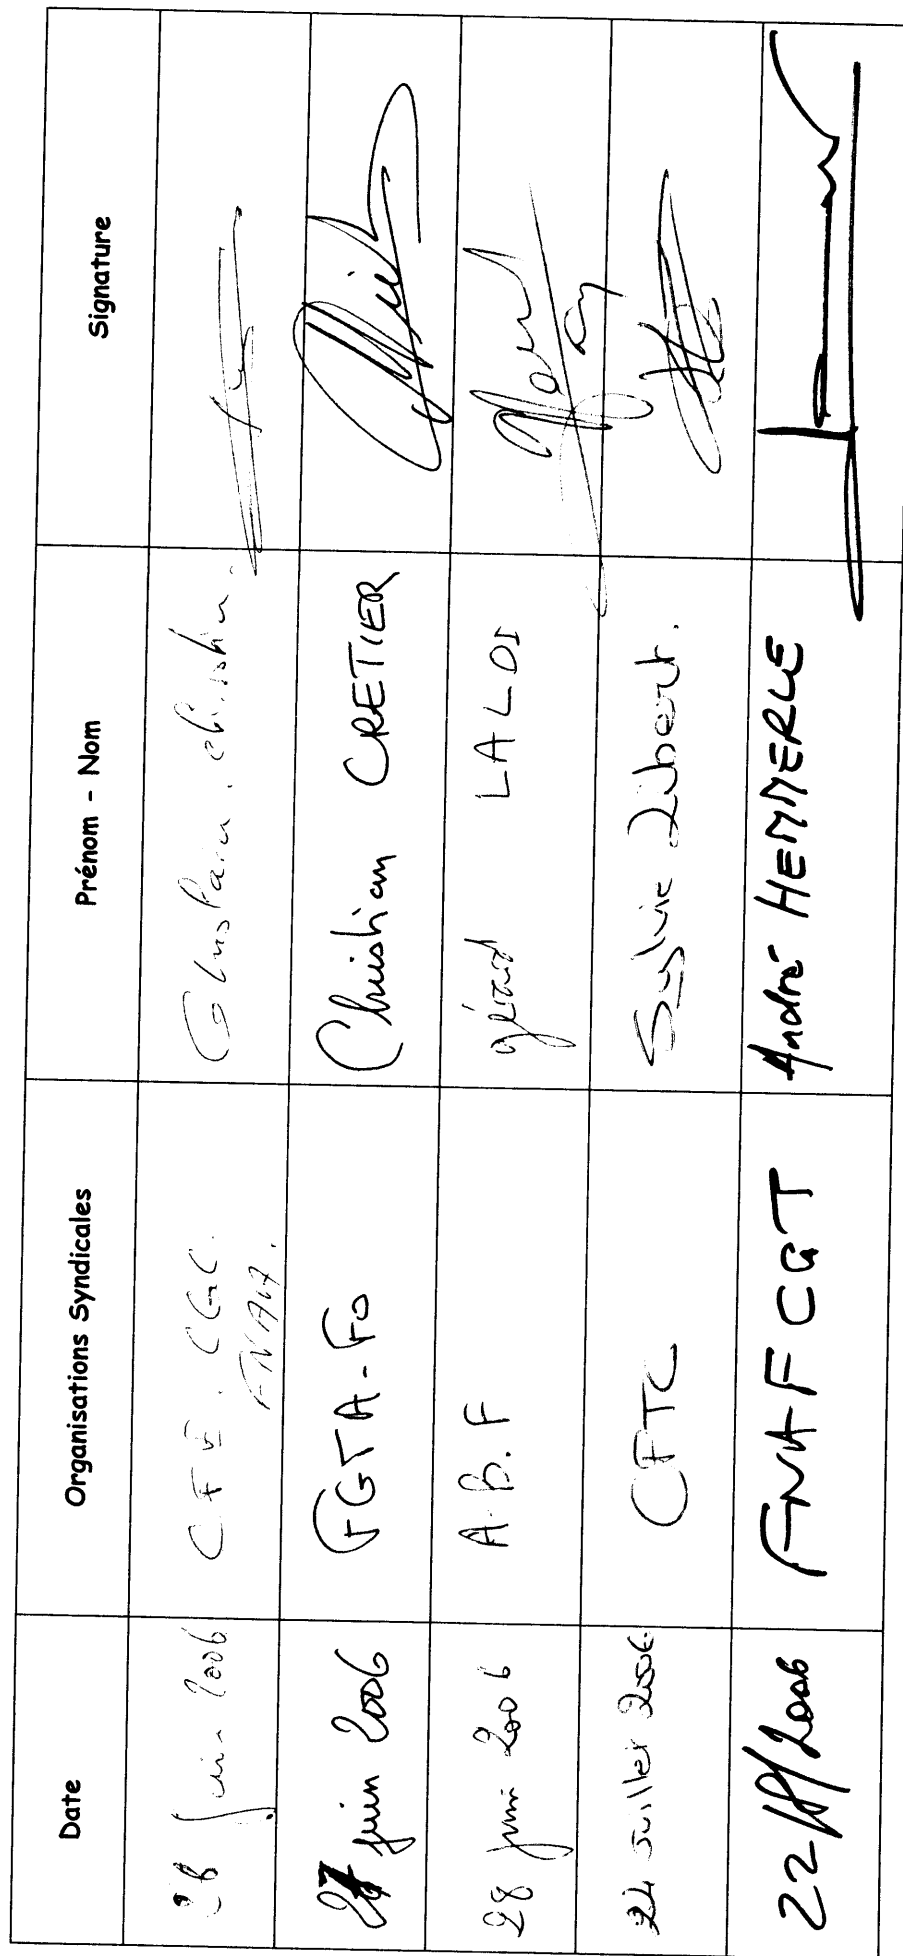 Date Organisations Syndicales Prénom - Nom Signature
26 juin 2006 C F E. CGC.
FNAA.
27 juin 2006 FGTA-FO Christian CRETIER
28 juin 2006 A.B.F gérard LALDI
24 Juillet 2006 CFTC Sylvie
22 2006 FNAF CGT André HEMMERLE